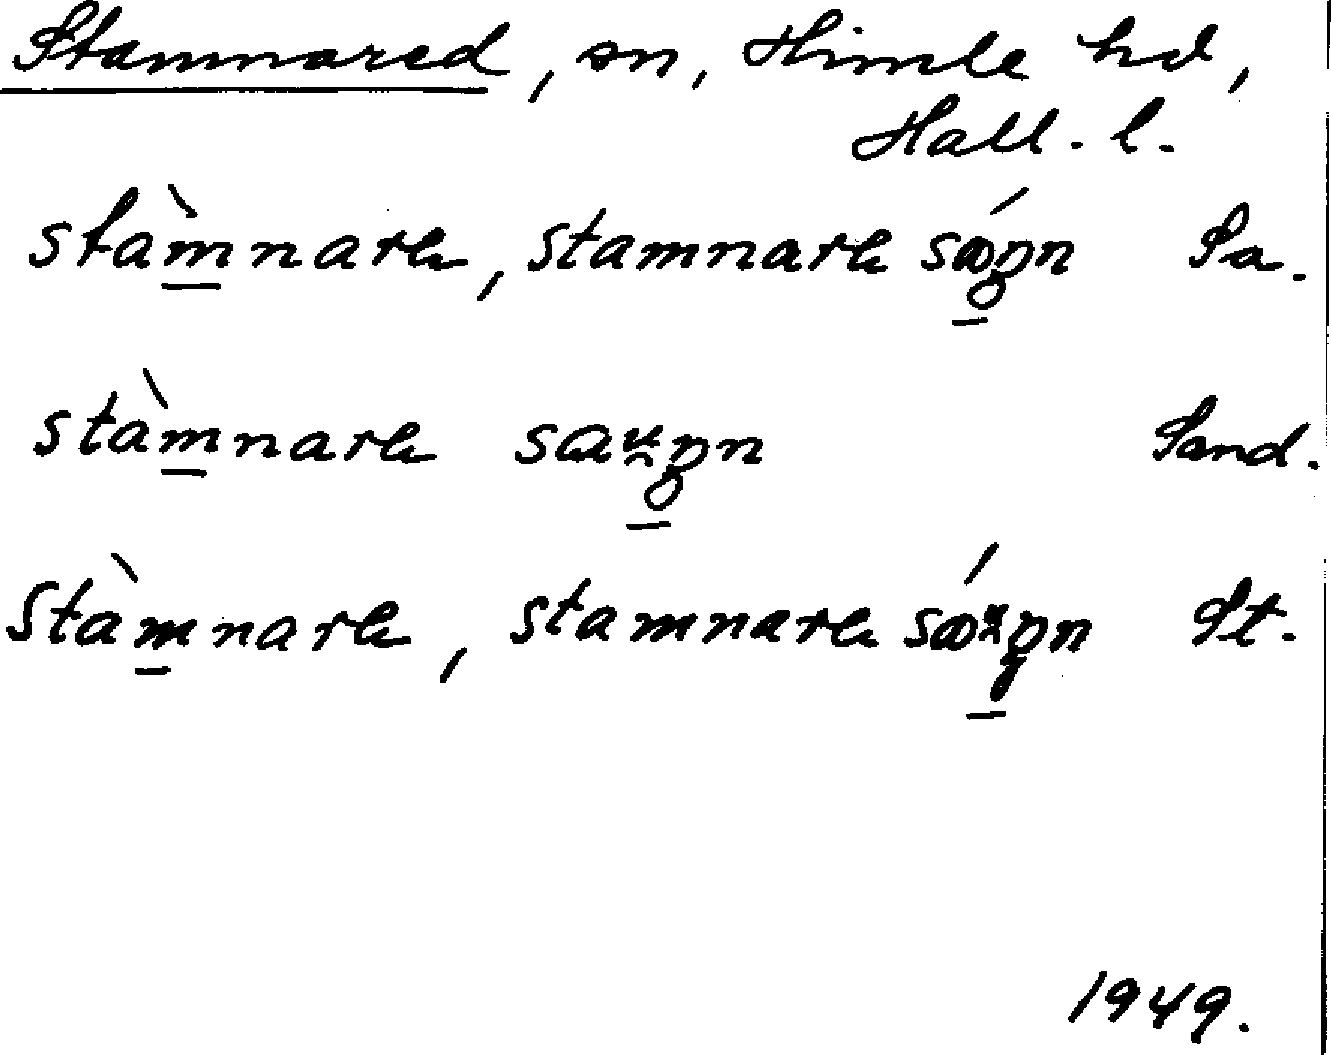 Stamnared, sn, Himle hd,
Hall. l.
stàm̲narɛ, stamnarɛ sǿgn Sa.
stàm̲narɛ Sand.
stàm̲narɛ, stamnarɛ St.
1949.